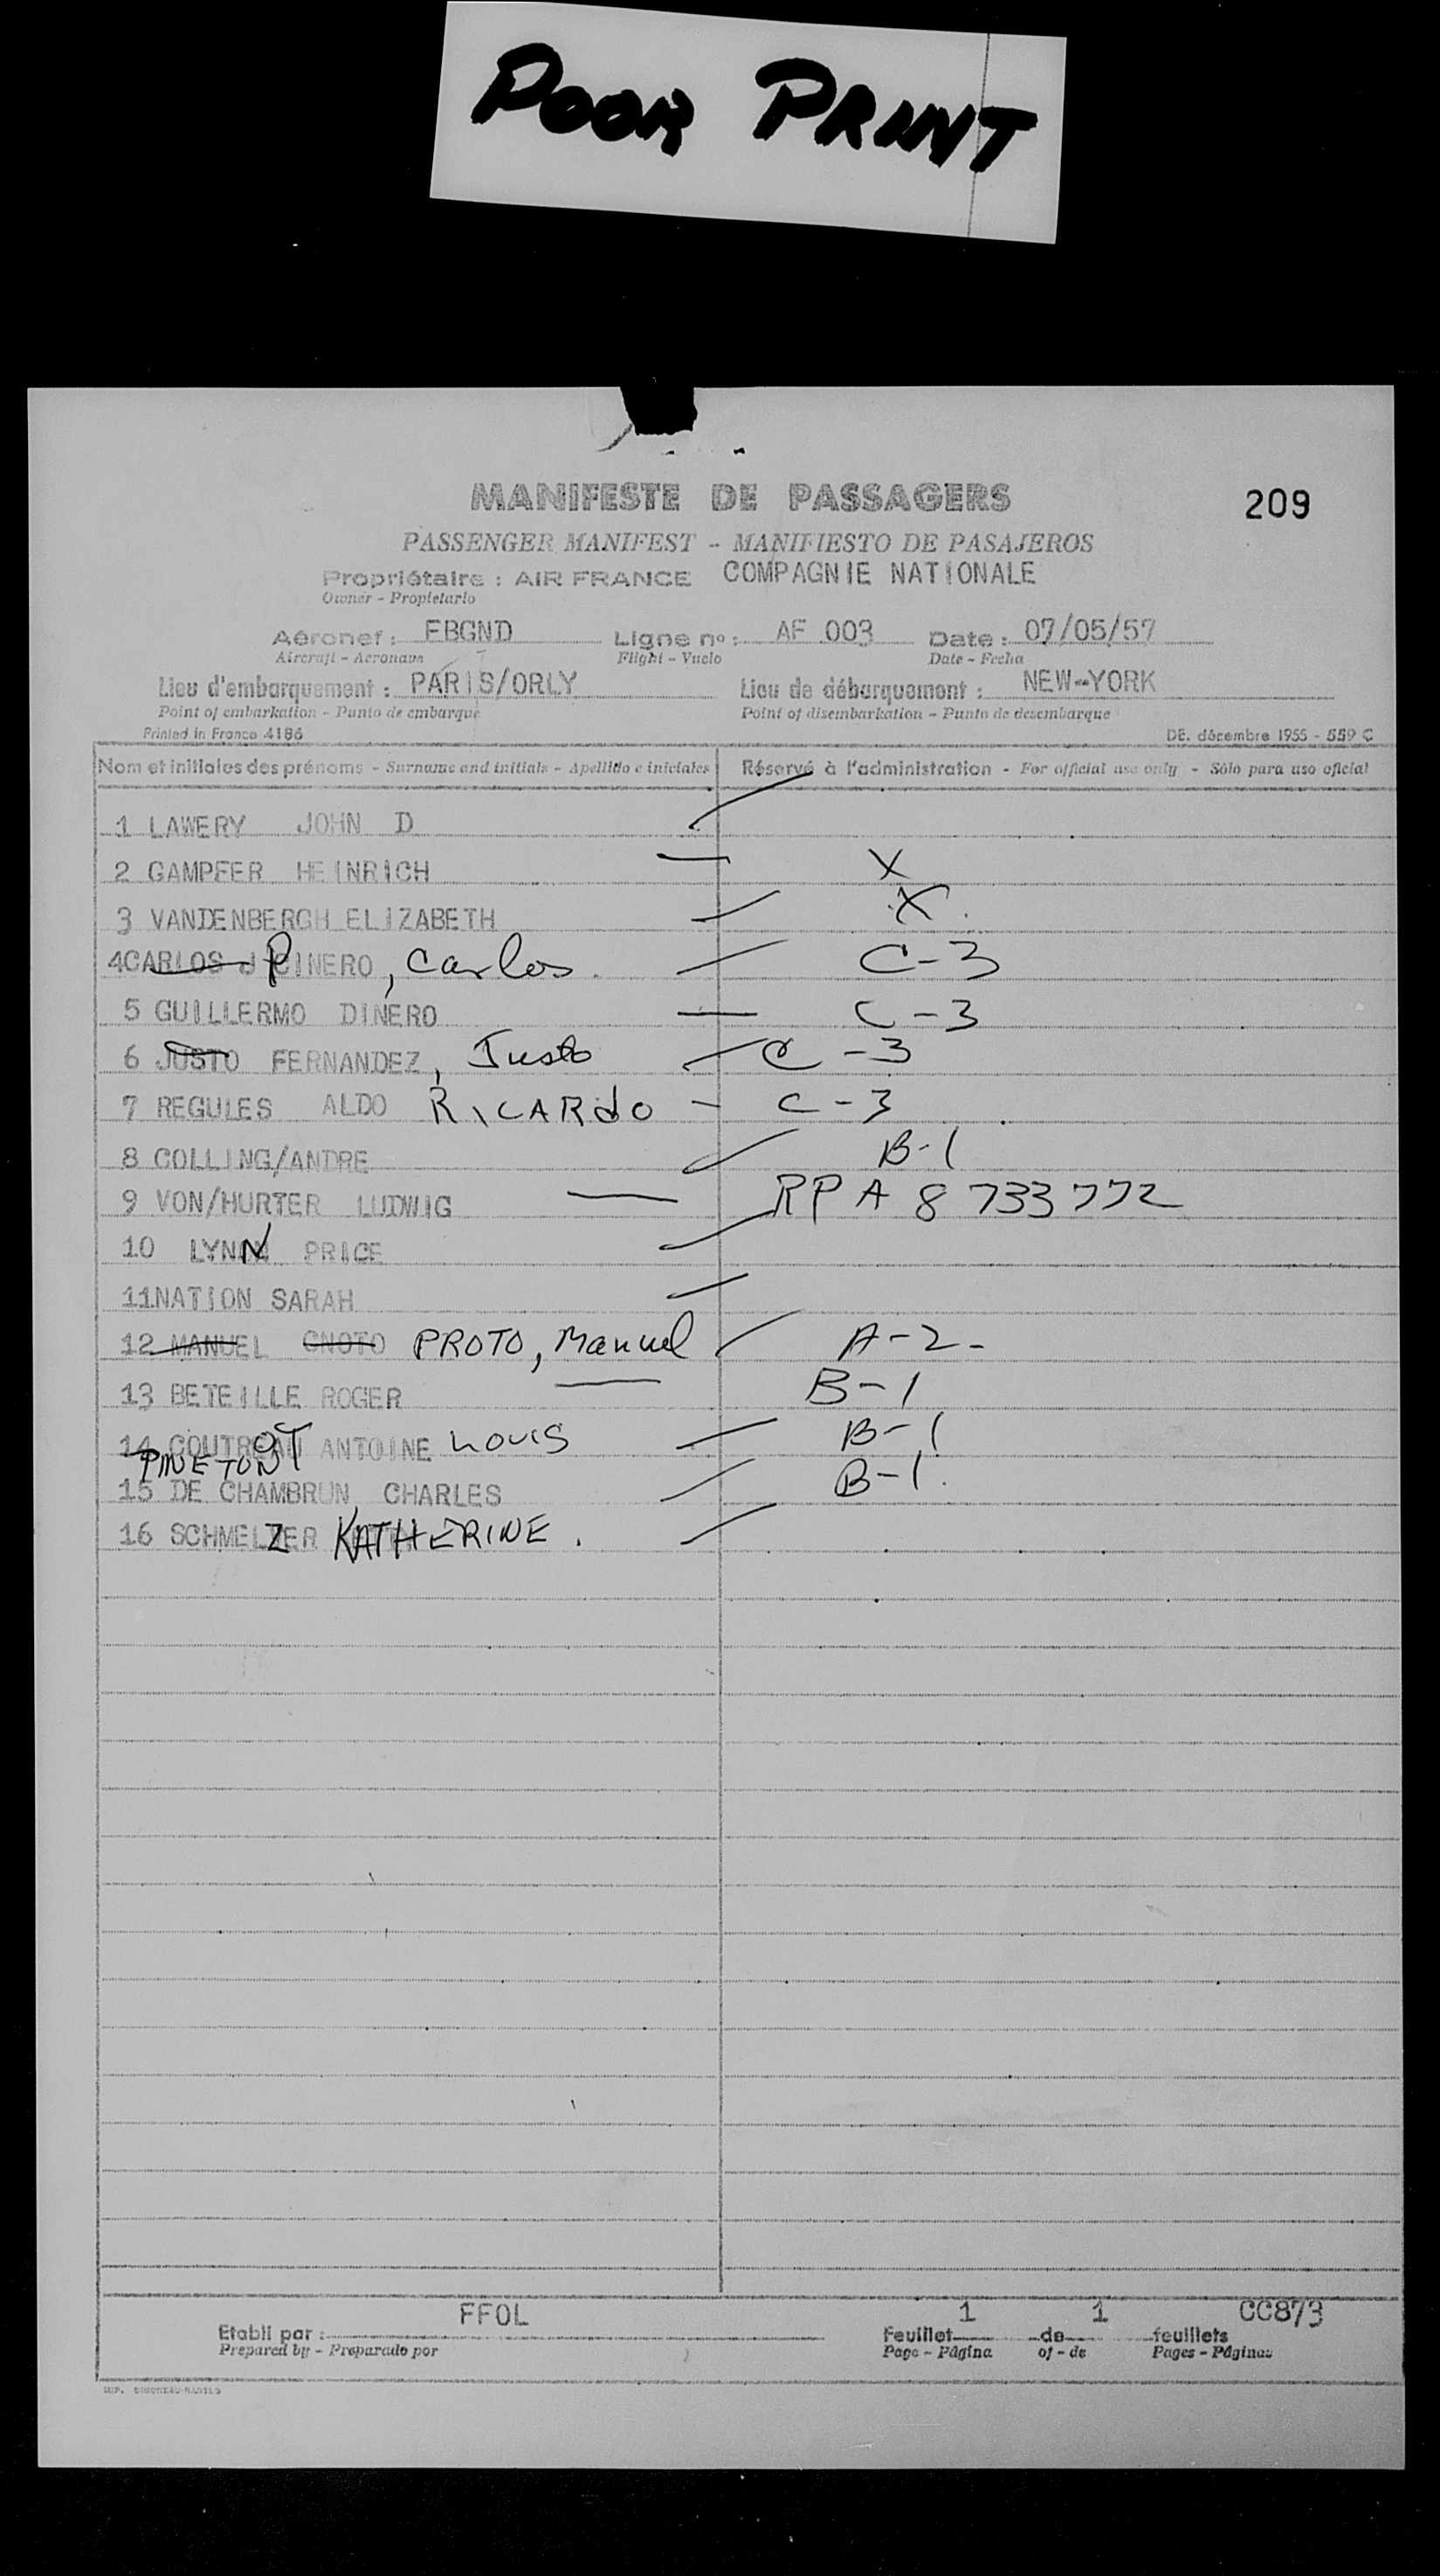 POOR PRINT
MANIFESTE DE PASSAGERS
209
PASSENGER MANIFEST - MANIFIESTO DE PASAJEROS
Propriétaire : AIR FRANCE COMPAGNIE NATIONALE
Owner - Propietario
Aéronef : FBGND Ligne nº : AF 003 Date : 07/05/57
Aircraft - Aeronave Flight - Vuelo Date - Fecha
Lieu d'embarquement : PARIS/ORLY Lieu de débarquement : NEW-YORK
Point of embarkation - Punto de embarque Point of disembarkation - Punto de desembarque
Printed in France 4186 DE. décembre 1955 - 559 C
Nom et initiales des prénoms - Surname and initials - Apellido e iniciales Réservé à l'administration - For official use only - Sólo para uso oficial
1 LAWERY JOHN D
2 GAMPFER HEINRICH X
3 VANDENBERGH ELIZABETH X
4 CARLOS J PINERO, Carlos C-3
5 GUILLERMO DINERO C-3
6 JUSTO FERNANDEZ, Justo C-3
7 REGULES ALDO RICARDO C-3
8 COLLING/ANDRE B-1
9 VON/HURTER LUDWIG RPA 8 733 772
10 LYNN PRICE
11 NATION SARAH
12 MANUEL GNOTO PROTO, Manuel A-2-
13 BETEILLE ROGER B-1
14 COUTROT ANTOINE Louis B-1
PINETON
15 DE CHAMBRUN CHARLES B-1.
16 SCHMELZER KATHERINE.
FFOL 1 1 CC873
Etabli par : Feuillet de feuillets
Prepared by - Preparado por Page - Página of - de Pages - Páginas